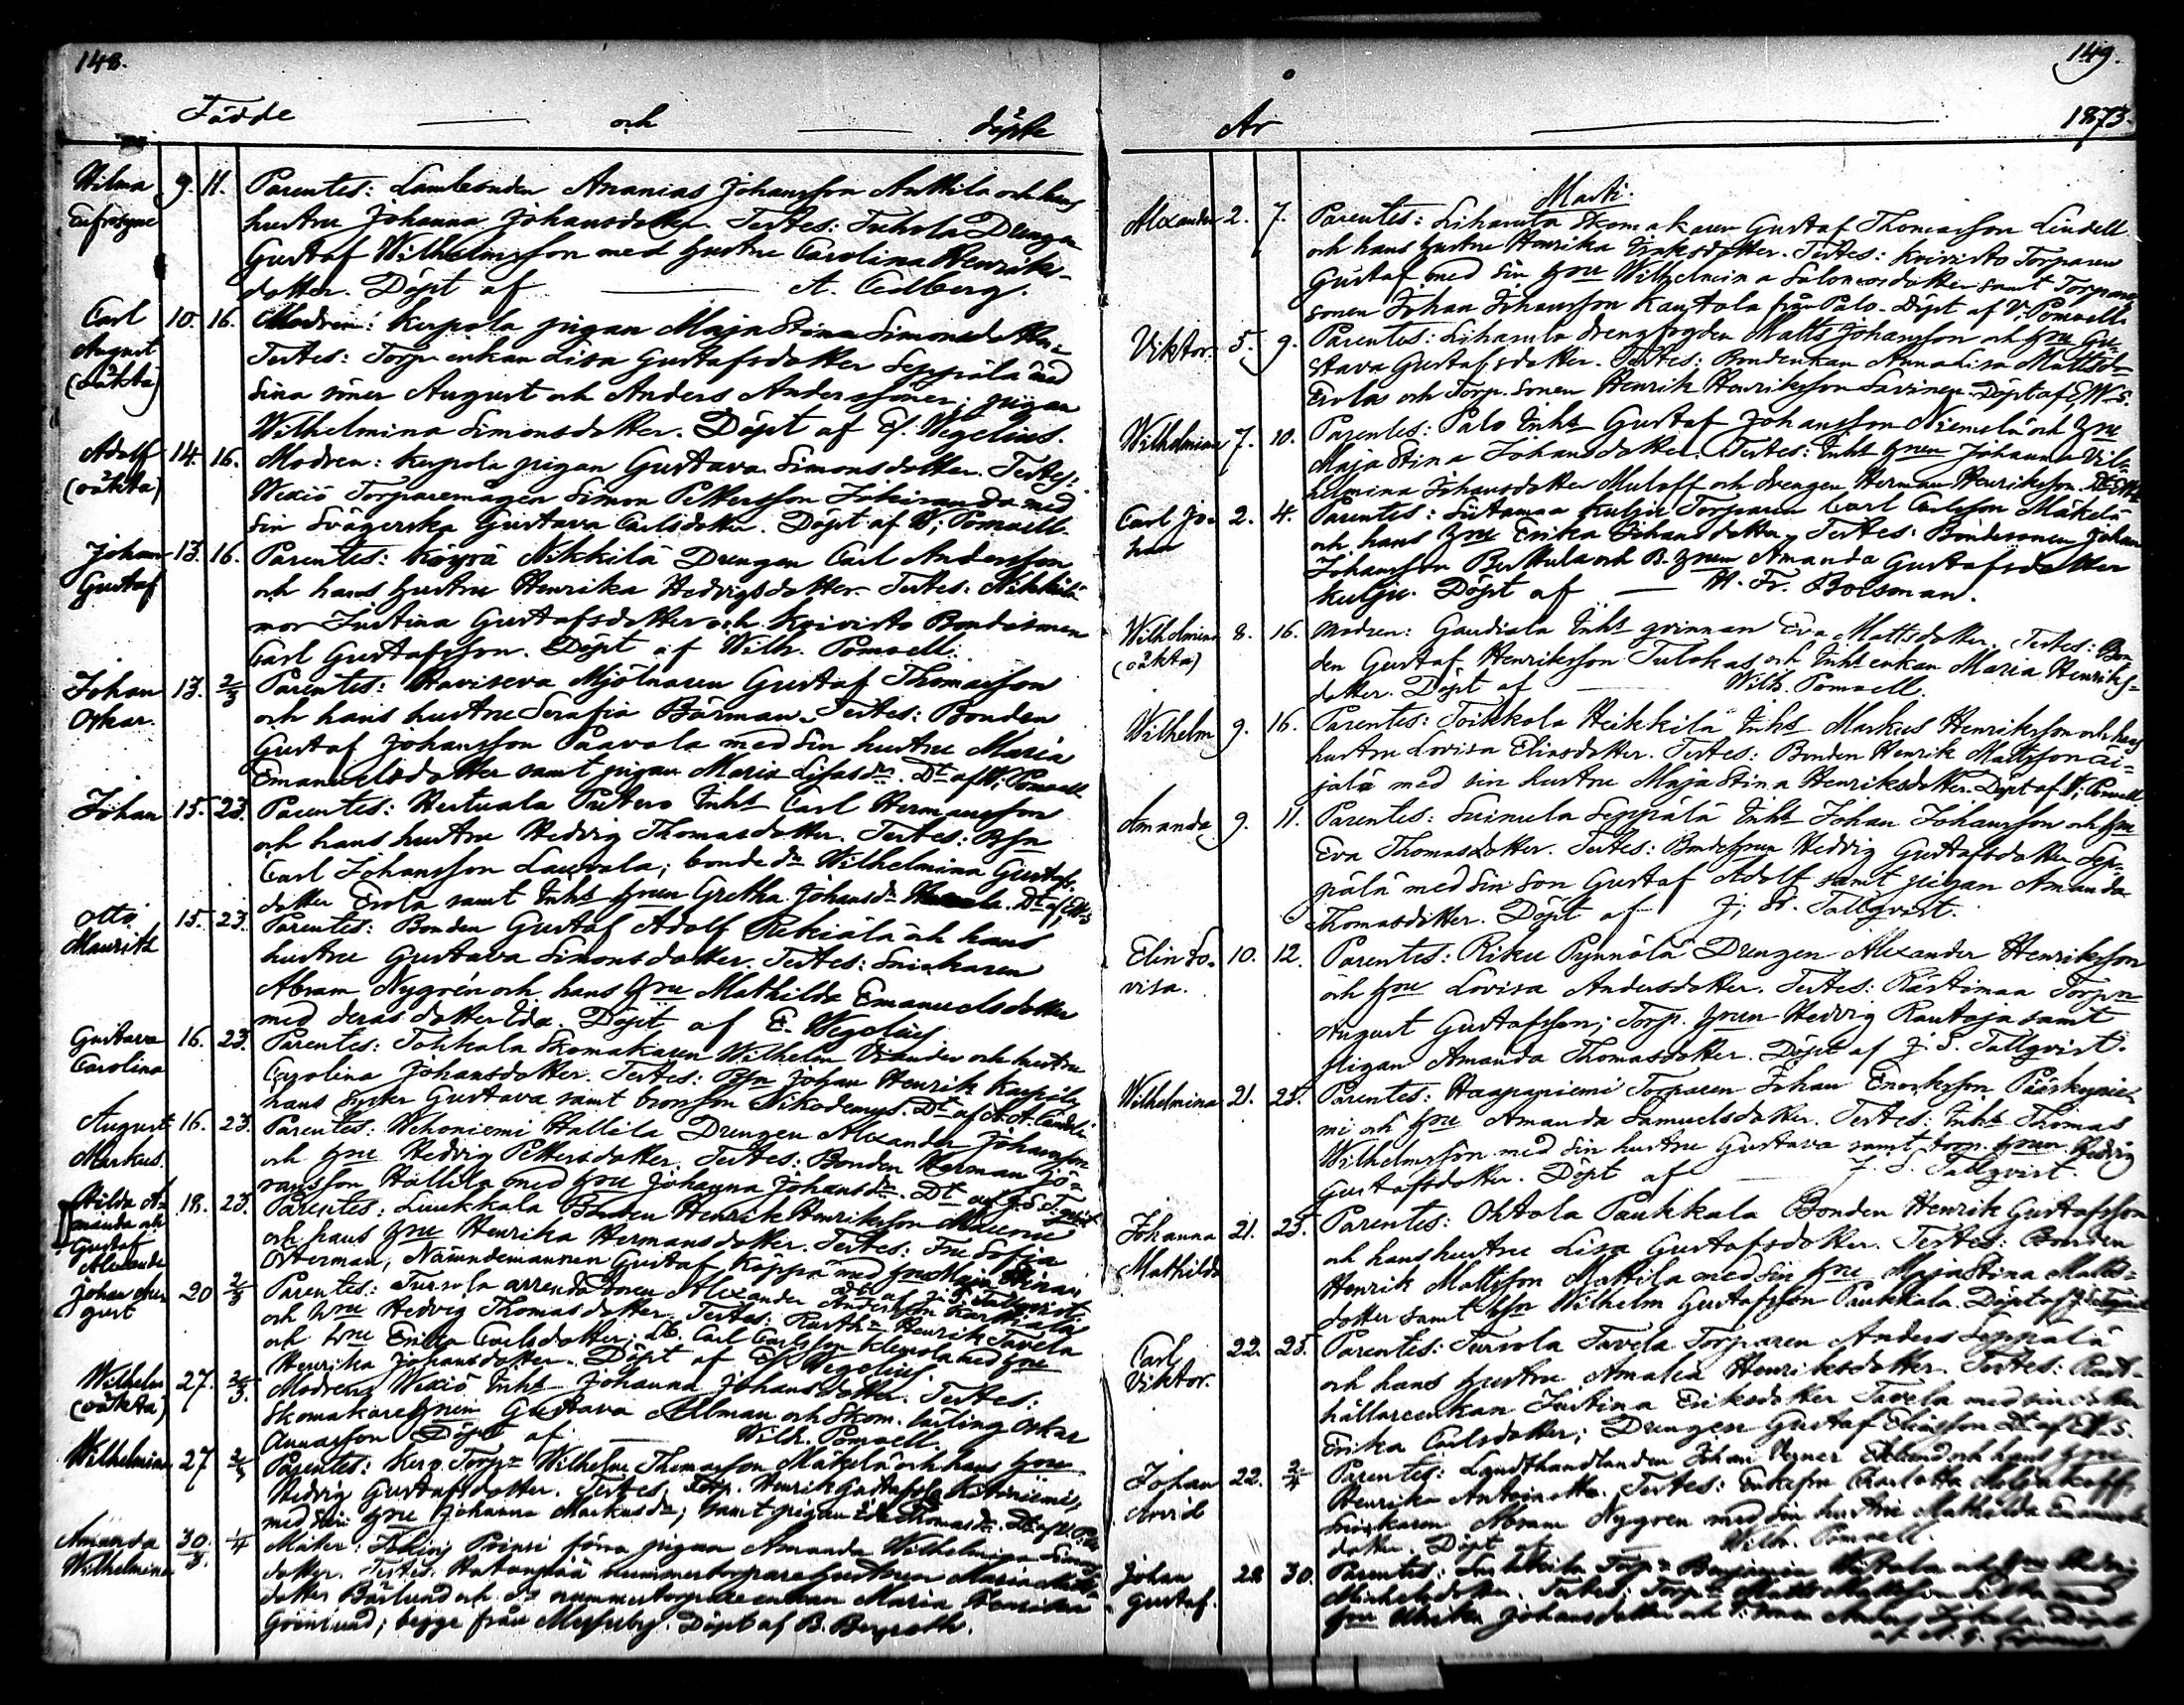 148.
Födde och döpte
Wilma 9. 11. Parentes: Landbonden Ananias Johansson Anttila och hans
Eufrosyne hustru Johanna Johansdotter. Testes: Tuhola Drengen
Gustaf Wilhelmsson med hustru Carolina Henriks-
dotter. Döpt af A. Cedberg.
Carl 10. 16. Modren: Kerpola pigan Maja Stina Simonsdotter.
August Testes: Torp. enkan Lisa Gustafsdotter Seppälä med
(oäkta) sina söner August och Anders Anderssöner; pigan
Wilhelmina Simonsdotter. Döpt af E. Wegelius.
Adolf 14. 16. Modren: Kerpola pigan Gustava Simonsdotter. Testes:
(oäkta) Wexiö Torparemågen Simon Pettersson Jokiranda med
sin Svägerska Gustava Carlsdotter. Döpt af W; Pomoell.
Johan 13. 16. Parentes: Köyrä Nikkilä Drengen Carl Andersson
Gustaf och hans hustru Henrika Hedvigsdotter. Testes: Nikkilä
mor Justina Gustafsdotter och Koivisto Bondesonen
Carl Gustafsson. Döpt af Wilh. Pomoell.
Johan 13. 2/3 Parentes: Mjölnaren Gustaf Thomasson
Oskar. och hans hustru Serafia Bärman. Testes: Bonden
Gustaf Johansson Paavola med sin hustru Maria
Emanuelsdotter samt pigan Maria Lisasdr. Dt af W; Pomoell
Johan 15. 23. Parentes: Hertuala Inhs Carl Hermansson
och hans hustru Hedvig Thomasdotter. Testes: Bsn
Carl Johansson Laurola; bonde dr Wilhelmina Gustafs-
dotter Erola samt Inhs hrun Gretha Johansdr
Otto 15. 23. Parentes: Bonden Gustaf Adolf Rekiälä och hans
Mauritz hustru Gustava Simonsdotter. Testes: Snickaren
Abram Nygrén och hans hru Mathilda Emanuelsdotter
med deras dotter Ida. Döpt af E. Wegelius
Gustava 16. 23. Parentes: Toikkala Skomakaren Wilhelm Vrander och hustru
Carolina Carolina Johansdotter. Testes: Bsn Johan Henrik
hans syster Gustava samt brorson Nikodemus. Dt af
August 16. 23. Parentes: Wehoniemi Hallila Drengen Alexander Johansson
Markus. och hru Hedvig Pettersdotter. Testes: Bonden Herman Jö-
ransson Hallila med hru Johanna Johansdr. Dt af
Hilda A- 18. 23. Parentes: Luukkala Bonden Henrik Henriksson
manda och och hans hru Henrika Hermansdotter. Testes: Fru Sofia
Gustaf Österman, Nämndemannen Gustaf Koppä med hru Maja Stina
Alexander
Johan Au- 20 2/3 Parentes: Tursola arrendatoren Alexander Andersson
gust och hru Hedvig Thomasdotter. Testes: Rusth:n Henrik Tavela
och hru Erika Carlsdotter; Lb. Carl Carlsson Klemola med hru
Henrika Johansdotter. Döpt af E. Wegelius.
Wilhelm 27. 2/3. Modren: Wexiö Inhs Johanna Johansdotter. Testes:
(oäkta) Skomakarehrun Gustava Allman och Skom. lärling Oskar
Annasson Döpt af Wilh. Pomoell.
Wilhelmina 27 2/3 Parentes: Torpn Wilhelm Thomasson Mäkelä och hans hru
Hedvig Gustafsdotter. Testes: Torp. Henrik Gustafsson
med sin hru Johanna Markusdr; samt pigan Thomasdr.
Amanda 30. 1/4 Mater: förra pigan Amanda Wilhelmina Simons-
Wilhelmina 3. dotter. Testes: nummertorpare hustrun Maria
dotter Bärlund och nummertorpare enkan Maria
Grönlund; begge från Messuby. Döpt af B. Bergroth.
149.
År 1873.
Marti
Alexander 2. 7. Parentes: Lihasula Skomakaren Gustaf Thomasson Lindell
och hans hustru Henrika Eriksdotter. Testes: Koivisto Torparen
Gustaf med sin hru Wilhelmina Salomosdotter samt Torpare
sonen Johan Johansson Kautola från Palo. Döpt af W; Pomoell.
Viktor. 5. 9. Parentes: Lihasula drengfogden Matts Johansson och hru Gu-
stava Gustafsdotter. Testes: Bondenkan Anna Lisa Mattsdr
Erola och Torp. sonen Henrik Henriksson Savinen. Döpt af E; W-s.
Wilhelmina 7. 10. Parentes: Palo Inhs Gustaf Johansson Niemelä och hru
Maja Stina Johansdotter. Testes: Inhs hrun Johanna Vil-
helmina Johansdotter Muloff och drengen Herman Henriksson.
Carl Jo- 2. 4. Parentes: Kulju Torparen Carl Carlsson Mäkelä
han och hans hru Erika Johansdotter. Testes: Bondesonen Johan
Johansson Berttula och B. hrun Amanda Gustafsdotter
Kulju. Döpt af H. Fr. Boisman.
Wilhelmina 8. 16. Modren: Gaudiala Inhs qvinnan Eva Mattsdotter. Testes: Bon
(oäkta) den Gustaf Henriksson Tulokas och Inhs enkan Maria Henriks-
dotter. Döpt af Wilh. Pomoell.
Wilhelm 9. 16. Parentes: Toikkola Heikkilä Inhs Markus Henriksson och hans
hustru Lovisa Eliasdotter. Testes: Bonden Henrik Mattsson Äi-
jälä med sin hustru Maja Stina Henriksdotter. Döpt af W; Pomoell
Amanda 9. 11. Parentes: Suinula Seppälä Inhs Johan Johansson och hru
Eva Thomasdotter. Testes: Bondehrun Hedvig Gustafsdotter Sep-
pälä med sin son Gustaf Adolf samt pigan Amanda
Thomasdotter. Döpt af J; S. Tallqvist.
Elin Lo- 10. 12. Parentes: Riku Pynnölä Drengen Alexander Henriksson
visa. och hru Lovisa Andersdotter. Testes: Torpn
August Gustafsson; Torp. hrun Hedvig Rautaja samt
pigan Amanda Thomasdotter. Döpt af J. S. Tallqvist.
Wilhelmina 21. 25. Parentes: Haapaniemi Torparen Johan Enoksson Pääskynie-
mi och hru Amanda Samuelsdotter. Testes: Inhs Thomas
Wilhelmsson med sin hustru Gustava samt torp. hrun Hedvig
Gustafsdotter. Döpt af J. S. Tallqvist.
Johanna 21. 25. Parentes: Ohtola Paukkala Bonden Henrik Gustafsson
Mathilda och hans hustru Lisa Gustafsdotter. Testes: Bonden
Henrik Mattsson Mattila med sin hru Maja Stina Matts-
dotter samt bsn Wilhelm Gustafsson Paukkala. Döpt af
Carl 22. 25. Parentes: Tursola Tavela Torparen Anders Seppälä
Viktor. och hans hustru Amalia Henriksdotter. Testes: Rust-
hållareenkan Justina Eriksdotter Tavela med sin dotter
Erika Carlsdotter; Drengen Gustaf Eliasson Dt af E. W-s.
Johan 22. 2/4 Parentes: Landthandlanden Johan Verner Eklund och hans hru
Arvid Henrika Antoinetta. Testes: Enkefru Charlotta
Snickaren Abram Nygren med sin hustru Mathilda Emanuels-
dotter. Döpt af Wilh. Pomoell.
Johan 22 30. Parentes: Torpn Benjamin och hru Hedvig
Gustaf. Michelsdotter. Testes: Torpn Matts Mattsson
hru Ulrika Johansdotter och Döpt
af